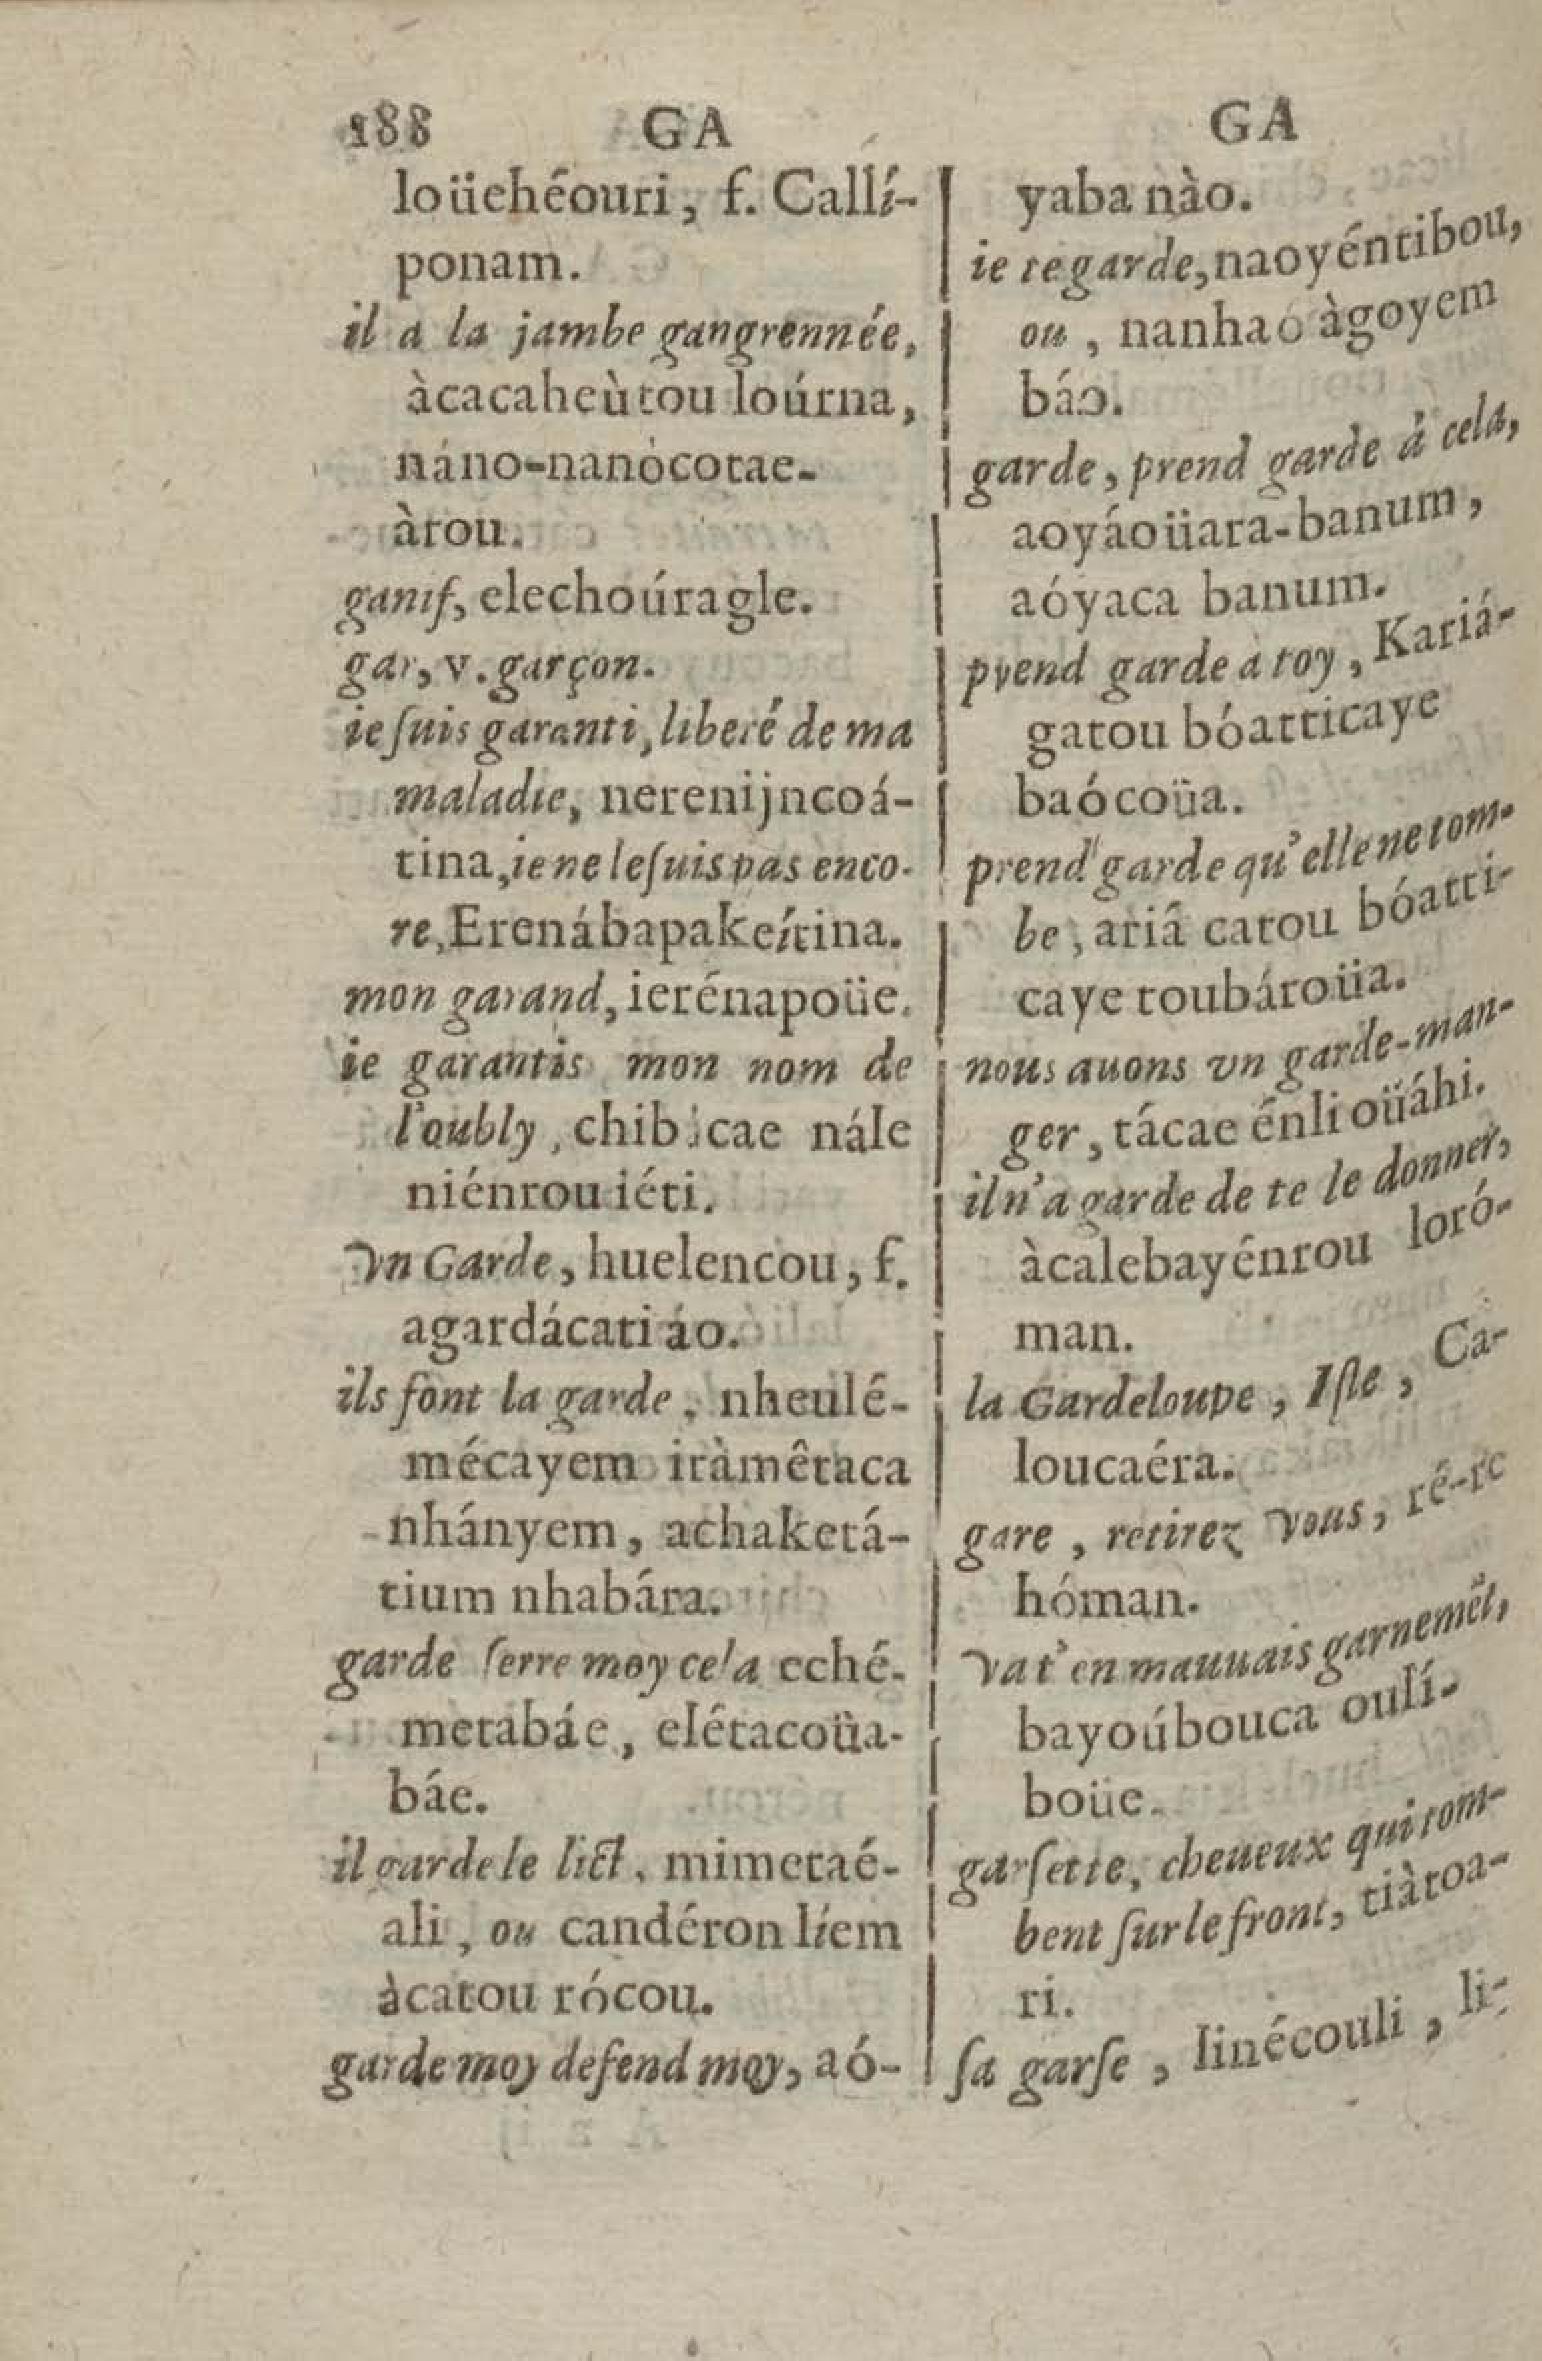 188 GA
loüehéouri, f. Callí-
ponam.
il a la jambe gangrennée,
àcacaheùtou loúrna,
náno-nanòcotae-
àtou.
ganif, elechoúragle.
gar, v. garçon.
ie ſuis garanti, liberé de ma
maladie, nerenijncoá-
tina, ie ne le ſuis pas enco-
re, Erenábapakeítina.
mon garand, ierénapoüe.
ie garantis mon nom de
l'oubly, chibicae nále
niénrou iéti.
Vn Garde, huelencou, f.
agardácati áo.
ils font la garde, nheulé-
mécayem iràmêtaca
nhányem, achaketá-
tium nhabára.
garde ſerre moy cela eché-
metabáe, elétacoüa-
báe.
il garde le lict, mimetaé-
ali, ou candéron líem
àcatou rócou.
garde moy defend moy, aó-
GA
yaba nào.
ie regarde, naoyéntibou,
ou, nanhaó àgoyem
báo.
garde, prend garde à cela,
aoyáoüara-banum,
aóyaca banum.
prend garde à toy, Kariá-
gatou bóatticaye
baócoüa.
prend garde qu'elle ne tom-
be, ariâ catou bóatti-
caye toubároüa.
nous auons vn garde-man-
ger, tácae énli oüáhi.
il n'a garde de te le donner,
àcalebayénrou loró-
man.
la Gardeloupe, Iſle, Ca-
loucaéra.
gare, retirez Vous, ré-rc
hóman.
Va t'en mauuais garnemẽt,
bayoúbouca oulí-
boüe.
garſette, cheueux qui tom-
bent ſur le front, tiàtoa-
ri.
ſa garſe, linécouli, li-